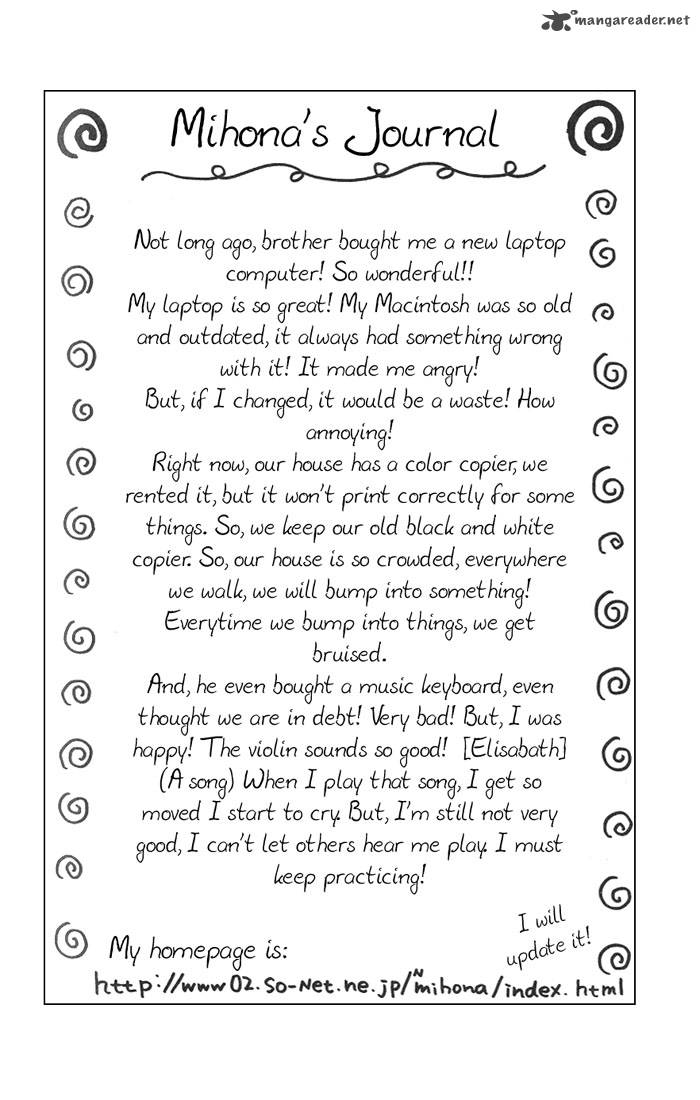 mangareader.net
Mihona's Journal
Not long ago, brother bought me a new laptop
computer! So wonderful!!
My laptop is so great! My Macintosh was so old
and outdated, it always had something wrong
with it! It made me angry!
But, if I changed, it would be a waste! How
annoying!
Right now, our house has a color copier, we
rented it, but it won't print correctly for some
things. So, we keep our old black and white
copier. So, our house is so crowded, everywhere
we walk, we will bump into something!
Everytime we bump into things, we get
bruised.
And, he even bought a music keyboard, even
thought we are in debt! Very bad! But, I was
happy! The violin sounds so good! [Elisabath]
(A song) When I play that song, I get so
moved I start to cry. But, I'm still not very
good, I can't let others hear me play. I must
keep practicing!
I will
update it!
My homepage is:
http://www02.so-net.ne.jp/~mihona/index.html